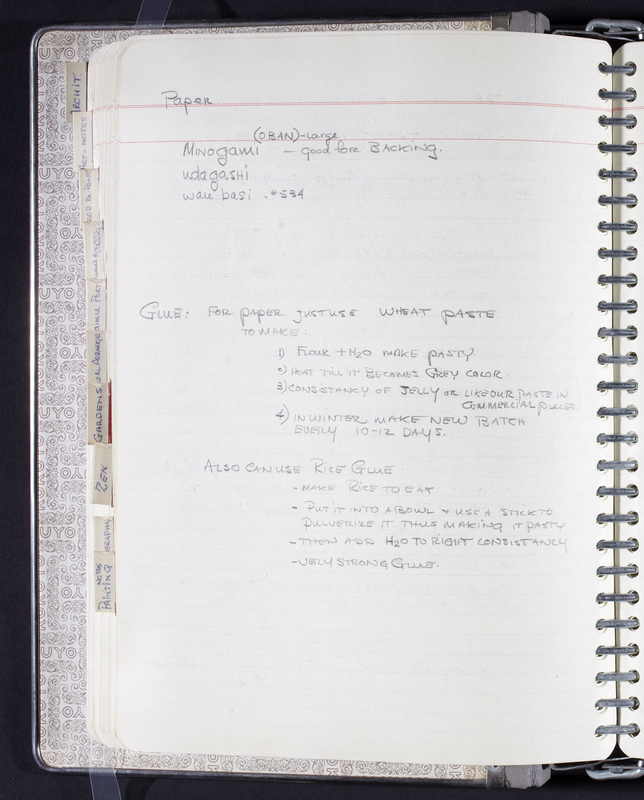 Paper
(OBAN)-Large.
Minogami - good for BACKING.
udagashi
wau basi . #534
GLUE: FOR paper JUST USE WHEAT PASTE
TO MAKE:
1) FLOUR + H2O MAKE PASTY
2) HEAT TILL IT BECOMES GREY COLOR
3) CONSISTANCY OF JELLY OR LIKE OUR PASTE IN
COMMERCIAL PLACES.
4) IN WINTER MAKE NEW BATCH
EVERY 10-12 DAYS.
ALSO CAN USE RICE GLUE
- MAKE RICE TO EAT
- PUT IT INTO A BOWL & USE A STICK TO
PULVERIZE IT THUS MAKING IT PASTY
- THEN ADD H2O TO RIGHT CONSISTANCY
- VERY STRONG GLUE.
ARCHIT
GARDENS
ZEN
GRAPHY
NOTES
PAINTING